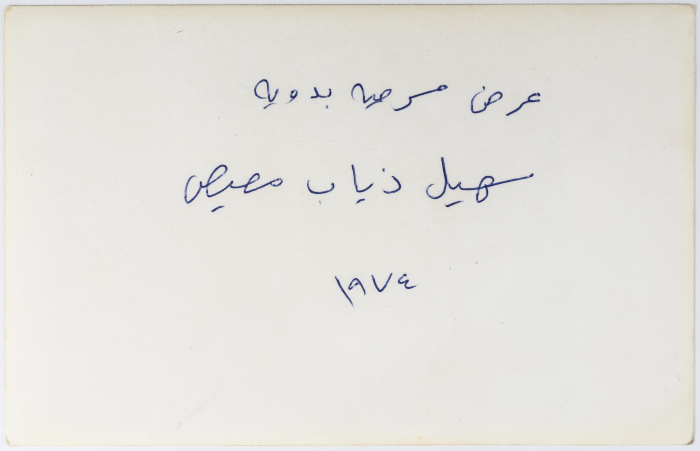 عرض مسرحيه بدويه
سهيل ذياب مصيص
١٩٧٤